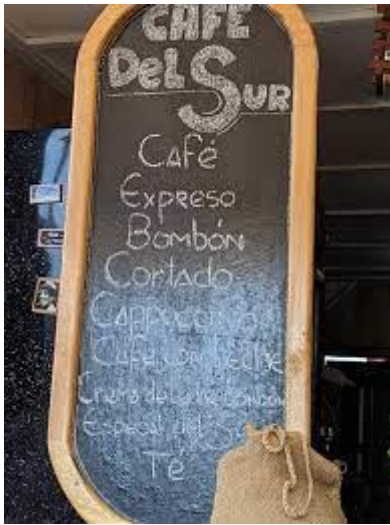 CAFE
DEL SUR
Café
Expreso
Bombón
Cortado
Cappuccino
Café con leche
Crema de leche Bombón
Especial del Sur
Té